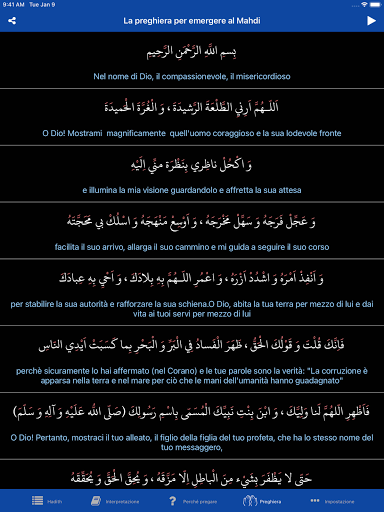 9:41 AM Tue Jan 9
La preghiera per emergere al Mahdi
بِسمِ اللَّهِ الرَّحْمَٰنِ الرَّحِيمِ
Nel nome di Dio, il compassionevole, il misericordioso
اَللَّـهُمَّ اَرِنيِ الطَّلْعَةَ الرَّشيدَةَ ، وَ الْغُرَّةَ الْحَميدَةَ
O Dio! Mostrami magnificamente quell'uomo coraggioso e la sua lodevole fronte
وَ اكْحُلْ ناظِري بِنَظْرَة منِّي اِلَيْهِ
e illumina la mia visione guardandolo e affretta la sua attesa
وَ عَجِّلْ فَرَجَهُ وَ سَهِّلْ مَخْرَجَهُ ، وَ اَوْسِعْ مَنْهَجَهُ وَ اسْلُكْ بي مَحَجَّتَهُ
facilita il suo arrivo, allarga il suo cammino e mi guida a seguire il suo corso
وَ اَنْفِذْ اَمْرَهُ وَ اشْدُدْ اَزْرَهُ ، وَ اعْمُرِ اللَّـهُمَّ بِهِ بِلادَكَ ، وَ اَحْيِ بِهِ عِبادَكَ
per stabilire la sua autorità e rafforzare la sua schiena.O Dio, abita la tua terra per mezzo di lui e dai
vita ai tuoi servi per mezzo di lui
فَاِنَّكَ قُلْتَ وَ قَوْلُكَ الْحَقُّ ، ظَهَرَ الْفَسادُ فِي الْبَرِّ وَ الْبَحْرِ بِما كَسَبَتْ اَيْدِي النّاسِ
perchè sicuramente lo hai affermato (nel Corano) e le tue parole sono la verità: "La corruzione è
apparsa nella terra e nel mare per ciò che le mani dell'umanità hanno guadagnato"
فَاَظْهِرِ اللّهُمَّ لَنا وَلِيَّكَ ، وَ ابْنَ بِنْتِ نَبِيِّكَ الْمُسَمّى بِاسْمِ رَسُولِكَ (صَلَّى اللهُ عَلَيْهِ وَ آلِهِ وَ سَلَّمَ)
O Dio! Pertanto, mostraci il tuo alleato, il figlio della figlia del tuo profeta, che ha lo stesso nome del
tuo messaggero,
حَتّى لا يَظْفَرَ بِشَيْء مِنَ الْباطِلِ اِلّا مَزَّقَهُ ، وَ يُحِقَّ الْحَقَّ وَ يُحَقِّقَهُ
Hadith interpretazione Perché pregare Preghiera Impostazione